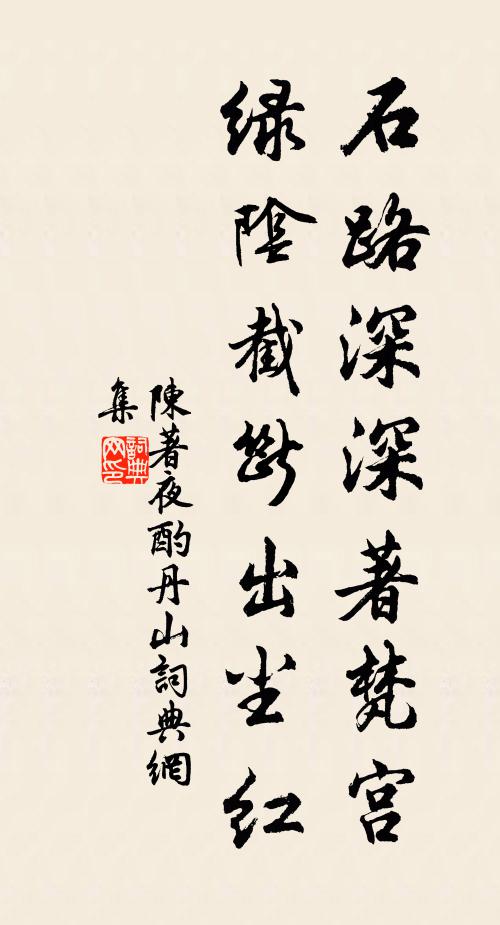 石路深深著梵宮
綠陰截斷出尘红
陳著夜酌丹山詞典網
集
詞典
网印